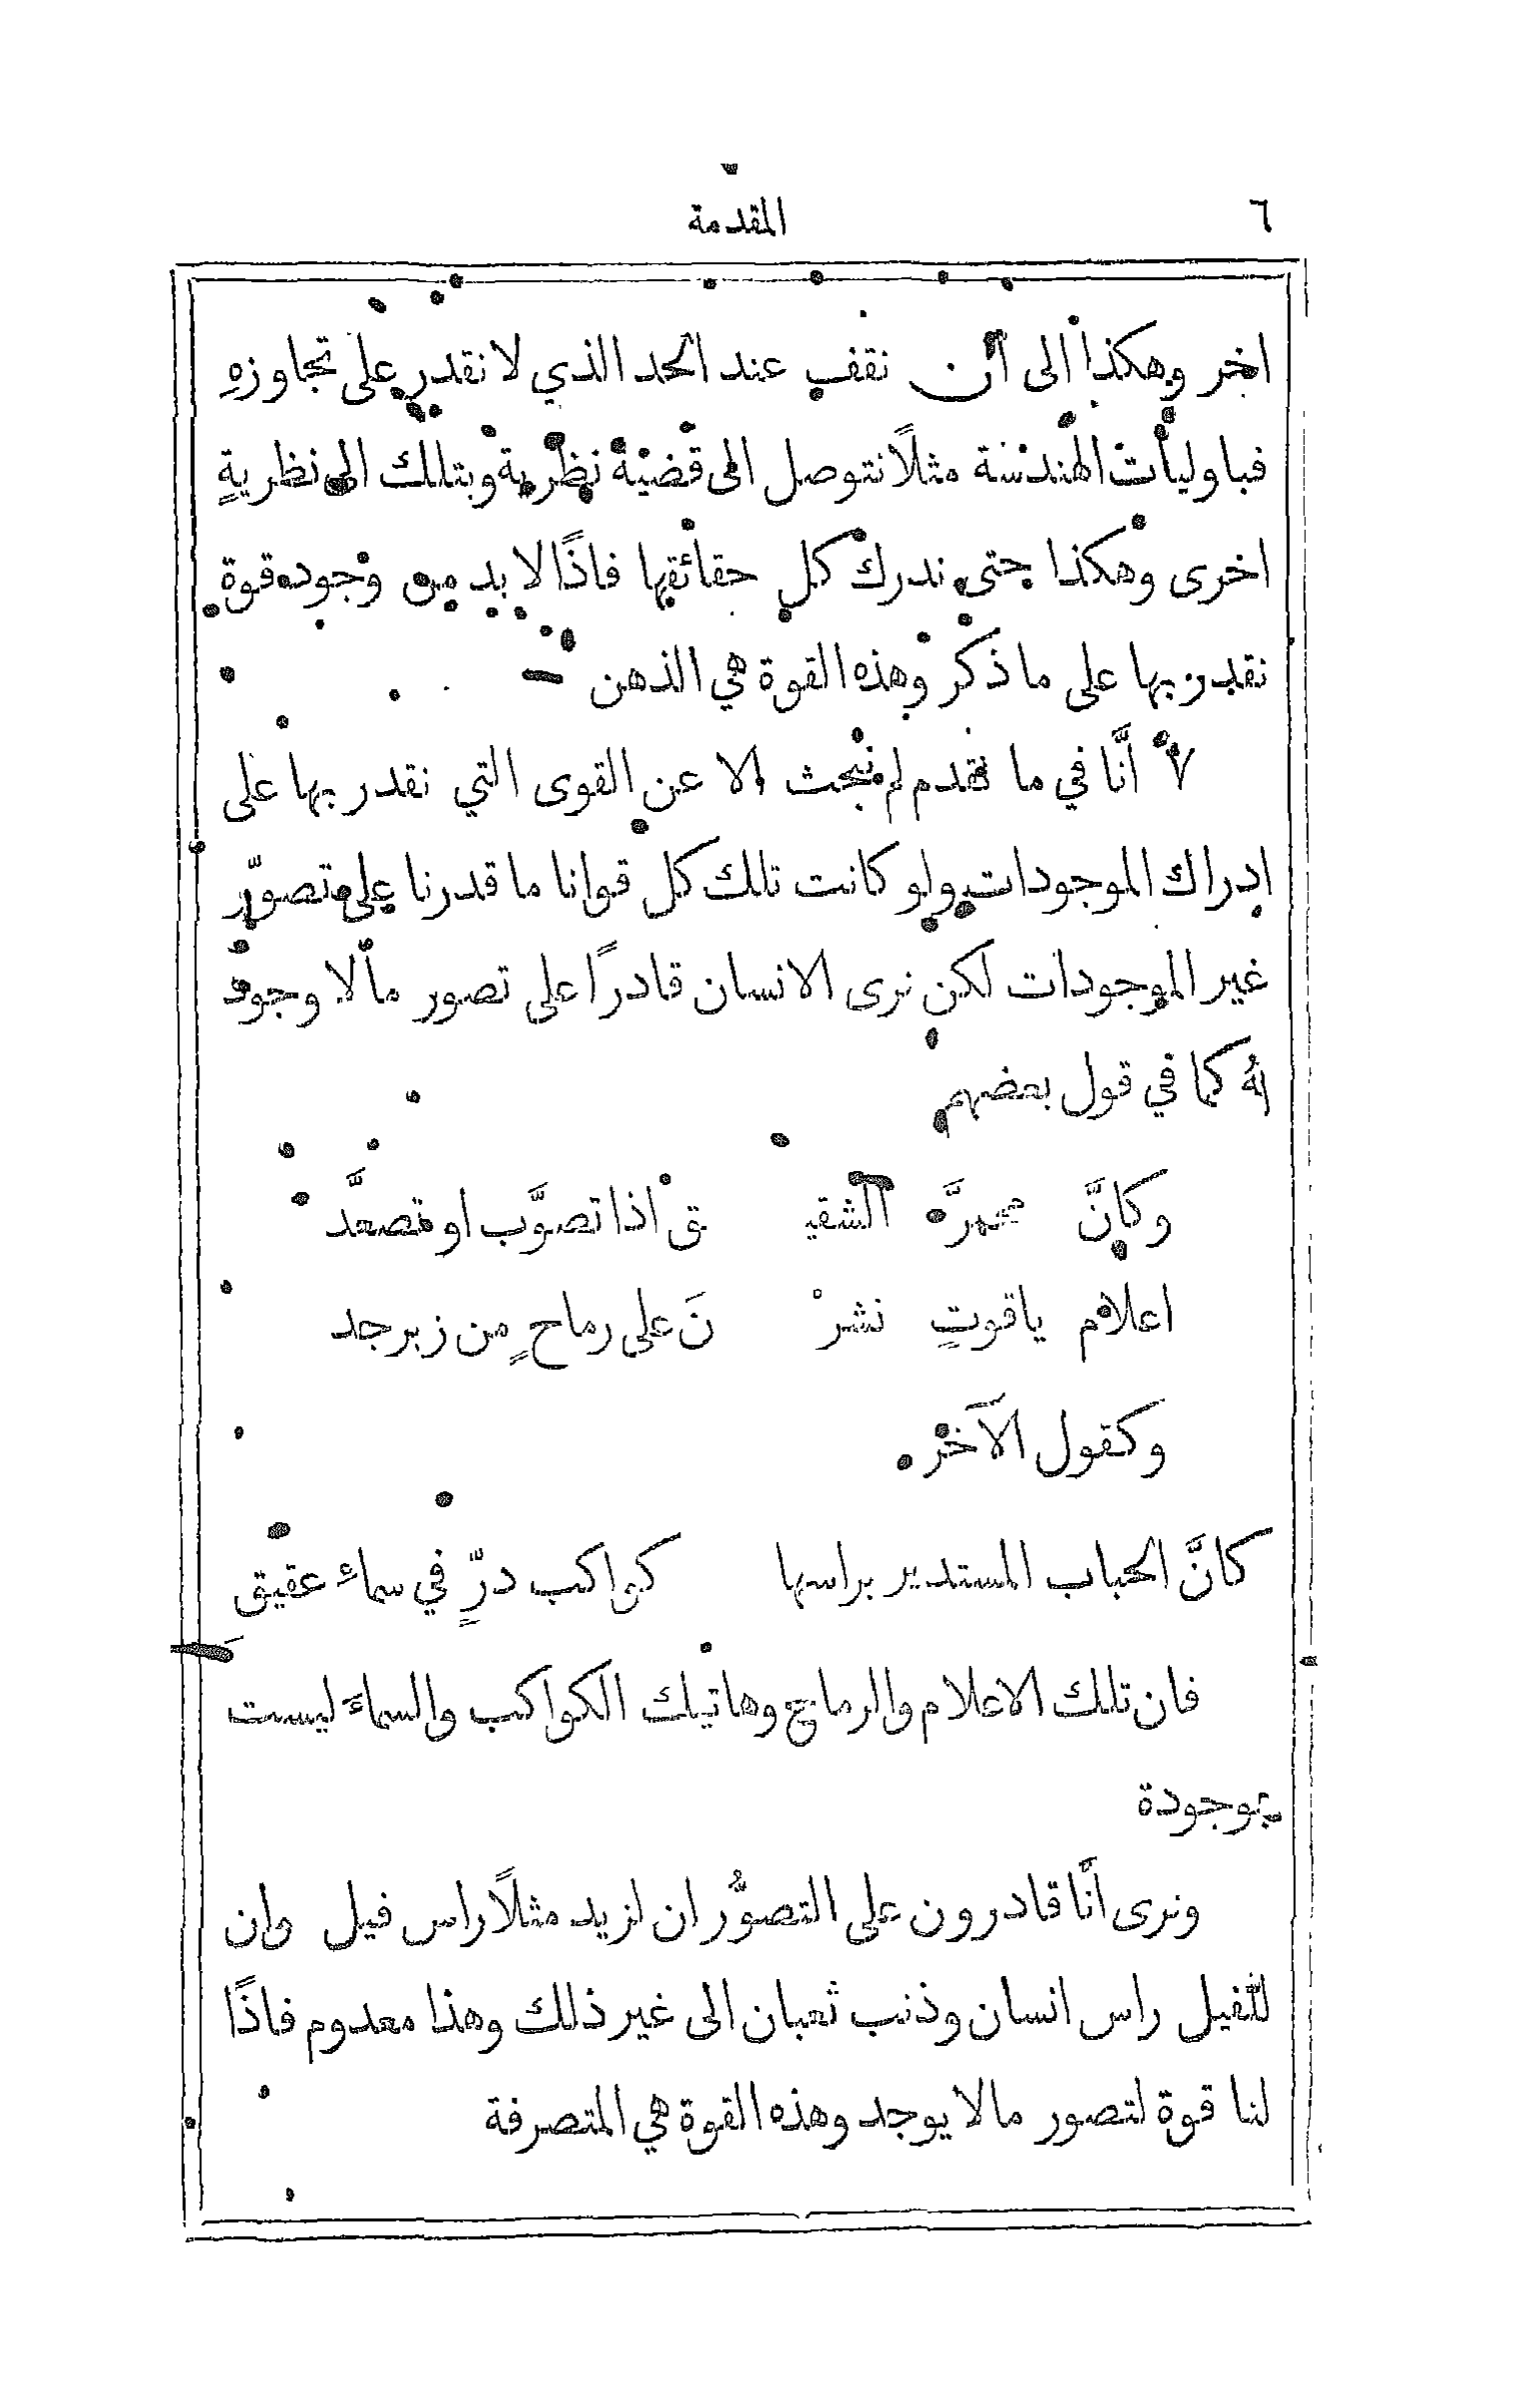 ٦
المقدمة
اخر وهكذا الى ان نقف عند الحد الذي لا نقدر على تجاوزهِ
فباوليات الهندسة مثلاً نتوصل الى قضية نظرية وبتلك الى نظريةٍ
اخرى وهكذا حتى ندرك كل حقائقها فاذًا لا بد من وجود قوة
نقدر بها على ما ذكر وهذه القوة هي الذهن
٧ أنَّا في ما تقدم لم نبحث الا عن القوى التي نقدر بها على
ادراك الموجودات ولو كانت تلك كل قوانا ما قدرنا على تصوّر
غير الموجودات لكن نرى الانسان قادرًا على تصور ما لا وجود
لهُ كما في قول بعضهم
وكانَّ محمرَّ الشقيـ ـق اذا تصوَّب او تصعَّد
اعلام ياقوتٍ نشرْ نَ على رماحٍ من زبرجد
وكقول الآخر
كانَّ الحباب المستدير براسها كواكب درٍّ في سماء عقيق
فان تلك الاعلام والرماح وهاتيك الكواكب والسماءَ ليست
بموجودة
ونرى أنَّا قادرون على التصوُّر ان لزيد مثلاً راس فيل وان
للفيل راس انسان وذنب ثعبان الى غير ذلك وهذا معدوم فاذًا
لنا قوة لتصور ما لا يوجد وهذه القوة هي المتصرفة